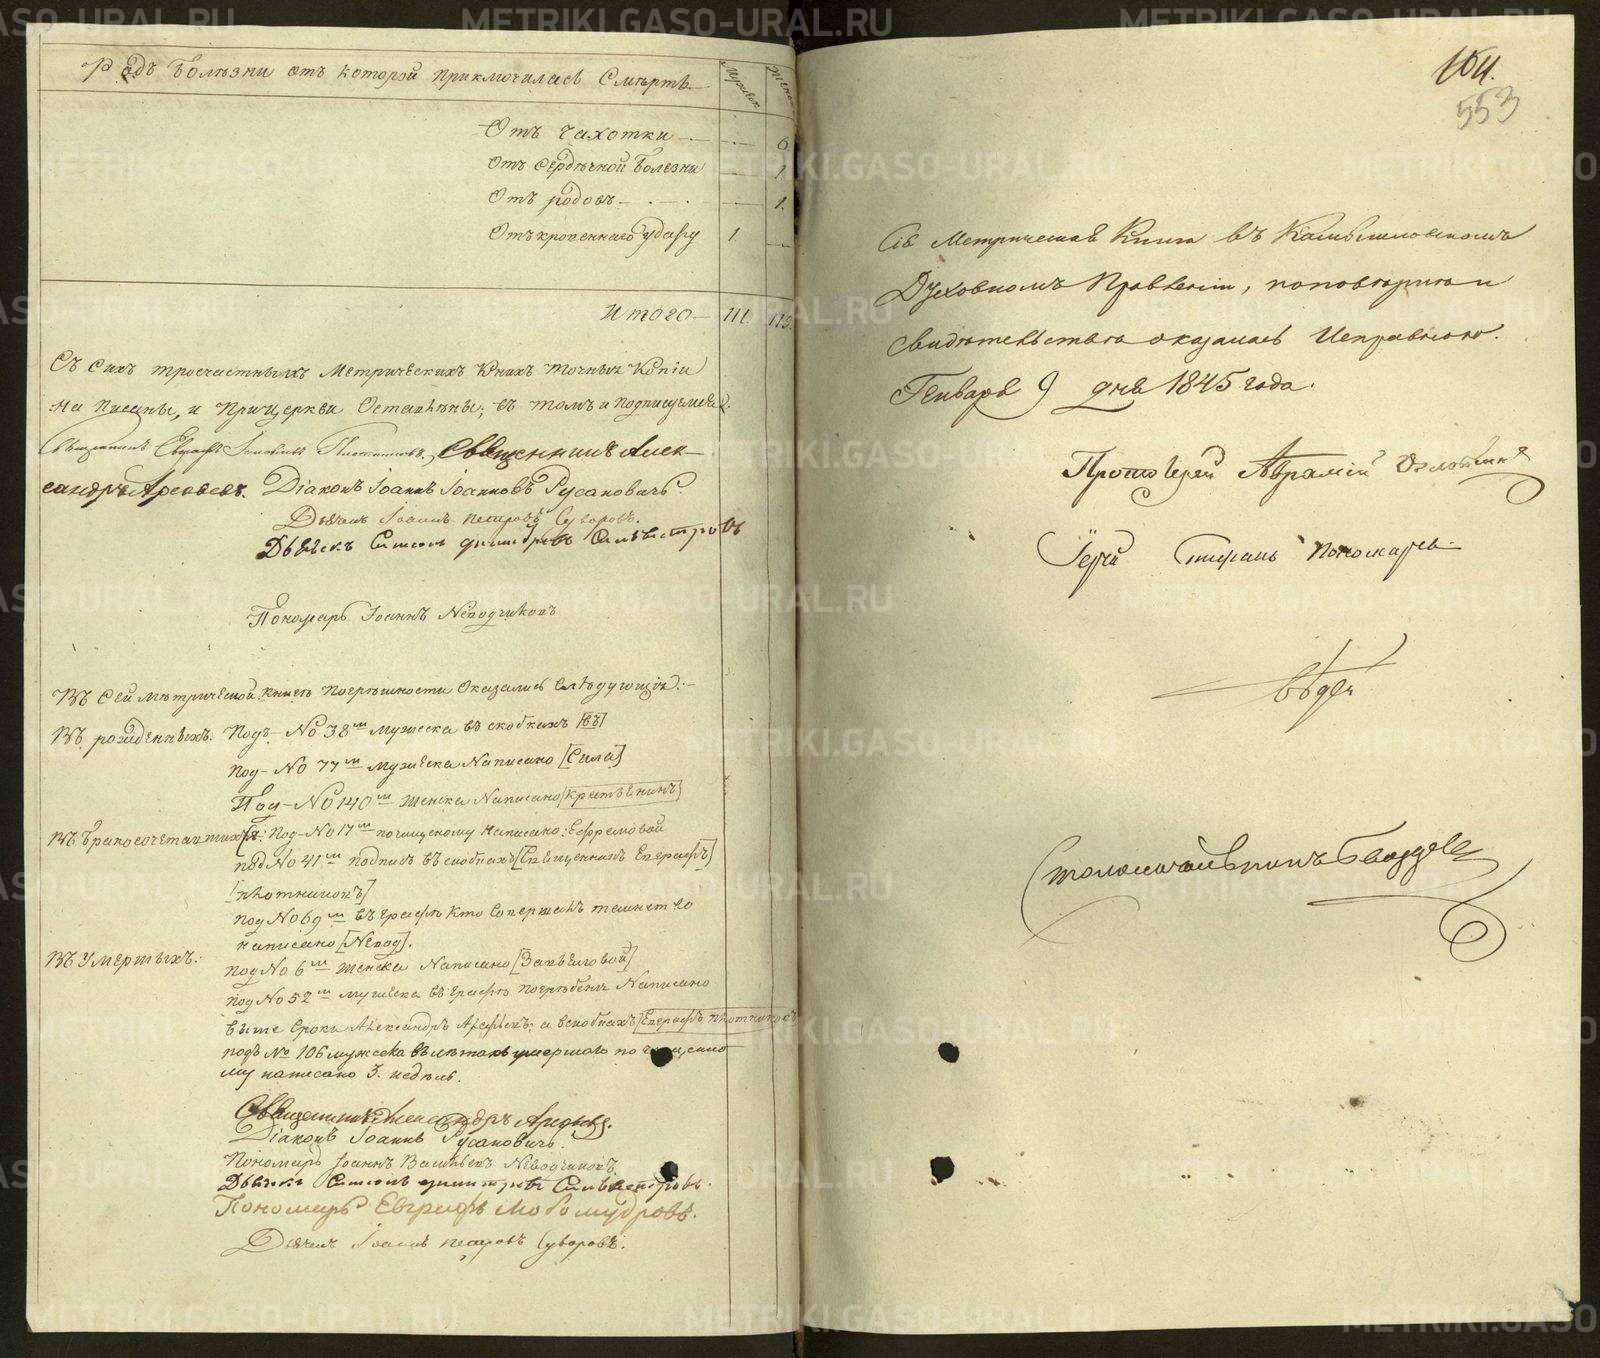 Родъ Болѣзни отъ которой приключилась Смерть Мужеск Женск
Отъ чахотки — 6.
Отъ Сердечной Болезни — 1.
Отъ родовъ — 1.
Отъ кровеннаго удару 1 —
Итого — 111. 113.
Съ сихъ троечастныхъ Метрическихъ Книхъ точныя Копіи
на писаны, и при церкви Оставлены; въ томъ и подписуемся.
Священникъ Евграфъ Плотниковъ. Священникъ Алек-
сандръ Арефьевъ. Діаконъ Іоаннъ Іоанновъ Русановичъ.
Дьячекъ Іоаннъ Петровъ Суворовъ.
Дьячекъ Симеонъ Димитріевъ Сильвестровъ
Пономарь Іоаннъ Неводчиковъ
Въ сей метрической книгѣ погрѣшности оказались слѣдующія:—
Въ рожденныхъ: Подъ — № 38м мужеска въ скобкахъ [въ]
под — № 77м мужеска написано [Сила]
Под — № 140м женска написано [крестьенинъ]
Въ бракосочетавшихся: Под — № 17м почищеному написано: Ефремовой
под № 41м подписъ въ скобкахъ [Священникъ Евграфъ]
[плотниковъ]
под № 69м въ графѣ кто совершалъ таинство
написано [Невод].
Въ умершыхъ: под № 6м женска написано
под № 52м мужеска въ графѣ погребенія написано
выше строки Александръ Арефьевъ; а вскобкахъ [Евграфъ плотниковъ
подъ № 106 мужеска въ летахъ умершаго по чищено
му написано 3. недѣль.
Священникъ Александръ Арефьевъ.
Діаконъ Іоаннъ Русановичь.
Пономарь Іоаннъ Васильевъ Неводчиковъ
Дьячекъ Симеонъ Димитріевъ Сильвестровъ.
Пономарь Евграфъ Любомудровъ.
Дьячекъ Іоаннъ Петровъ Суворовъ.
104.
553
Сія Метрическая Книга въ Камышловскомъ
Духовномъ Правленіи, по повѣркѣ и
свидѣтельству оказалась Исправною.
Генваря 9 дня 1845 года.
Протоіерей Аврамій
Іерей Стефанъ Пономаревъ
Столоначальникъ
METRIKI.GASO-URAL.RU